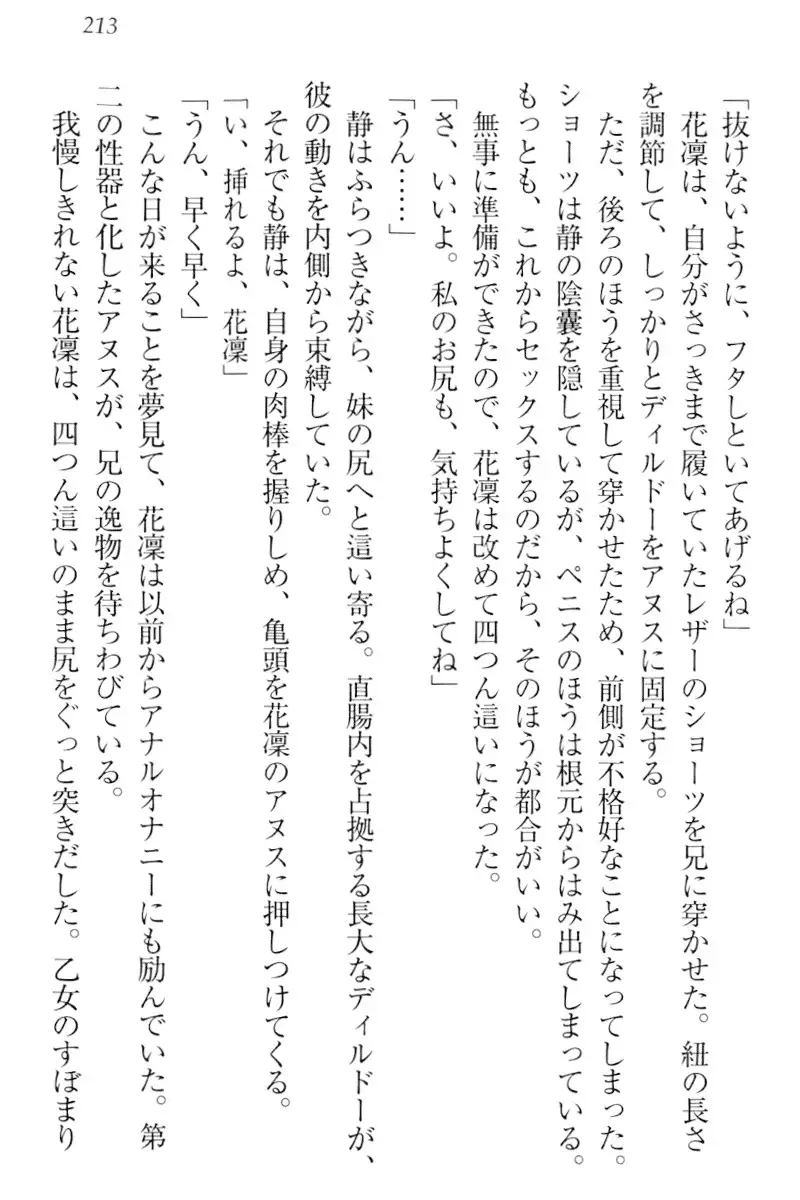 213
「抜けないように、フタしといてあげるね」
花凜は、自分がさっきまで履いていたレザーのショーツを兄に穿かせた。紐の長さ
を調節して、しっかりとディルドーをアヌスに固定する。
ただ、後ろのほうを重視して穿かせたため、前側が不格好なことになってしまった。
ショーツは静の陰嚢を隠しているが、ペニスのほうは根元からはみ出てしまっている。
もっとも、これからセックスするのだから、そのほうが都合がいい。
無事に準備ができたので、花凜は改めて四つん這いになった。
「さ、いいよ。私のお尻も、気持ちよくしてね」
「うん……」
静はふらつきながら、妹の尻へと這い寄る。直腸内を占拠する長大なディルドーが、
彼の動きを内側から束縛していた。
それでも静は、自身の肉棒を握りしめ、亀頭を花凜のアヌスに押しつけてくる。
「い、挿れるよ、花凜」
「うん、早く早く」
こんな日が来ることを夢見て、花凜は以前からアナルオナニーにも励んでいた。第
二の性器と化したアヌスが、兄の逸物を待ちわびている。
我慢しきれない花凜は、四つん這いのまま尻をぐっと突きだした。乙女のすぼまり